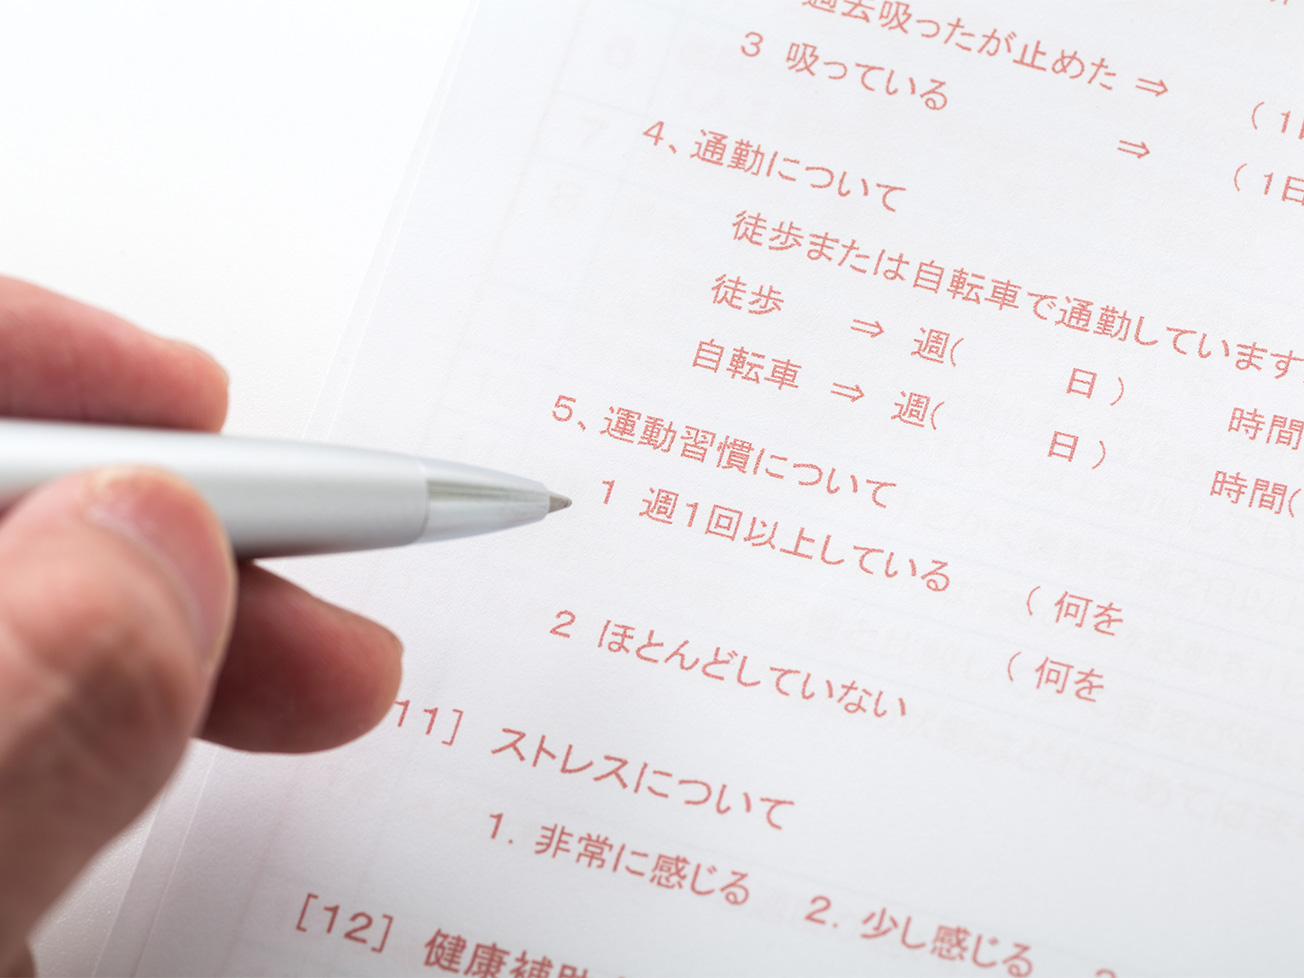 過去吸ったが止めた ⇒ (1日
3 吸っている ⇒ (1日
4、通勤について
徒歩または自転車で通勤しています
徒歩 ⇒ 週( 日) 時間
自転車 ⇒ 週( 日) 時間(
5、運動習慣について
1 週1回以上している (何を
2 ほとんどしていない (何を
11] ストレスについて
1. 非常に感じる 2. 少し感じる
[12] 健康補助